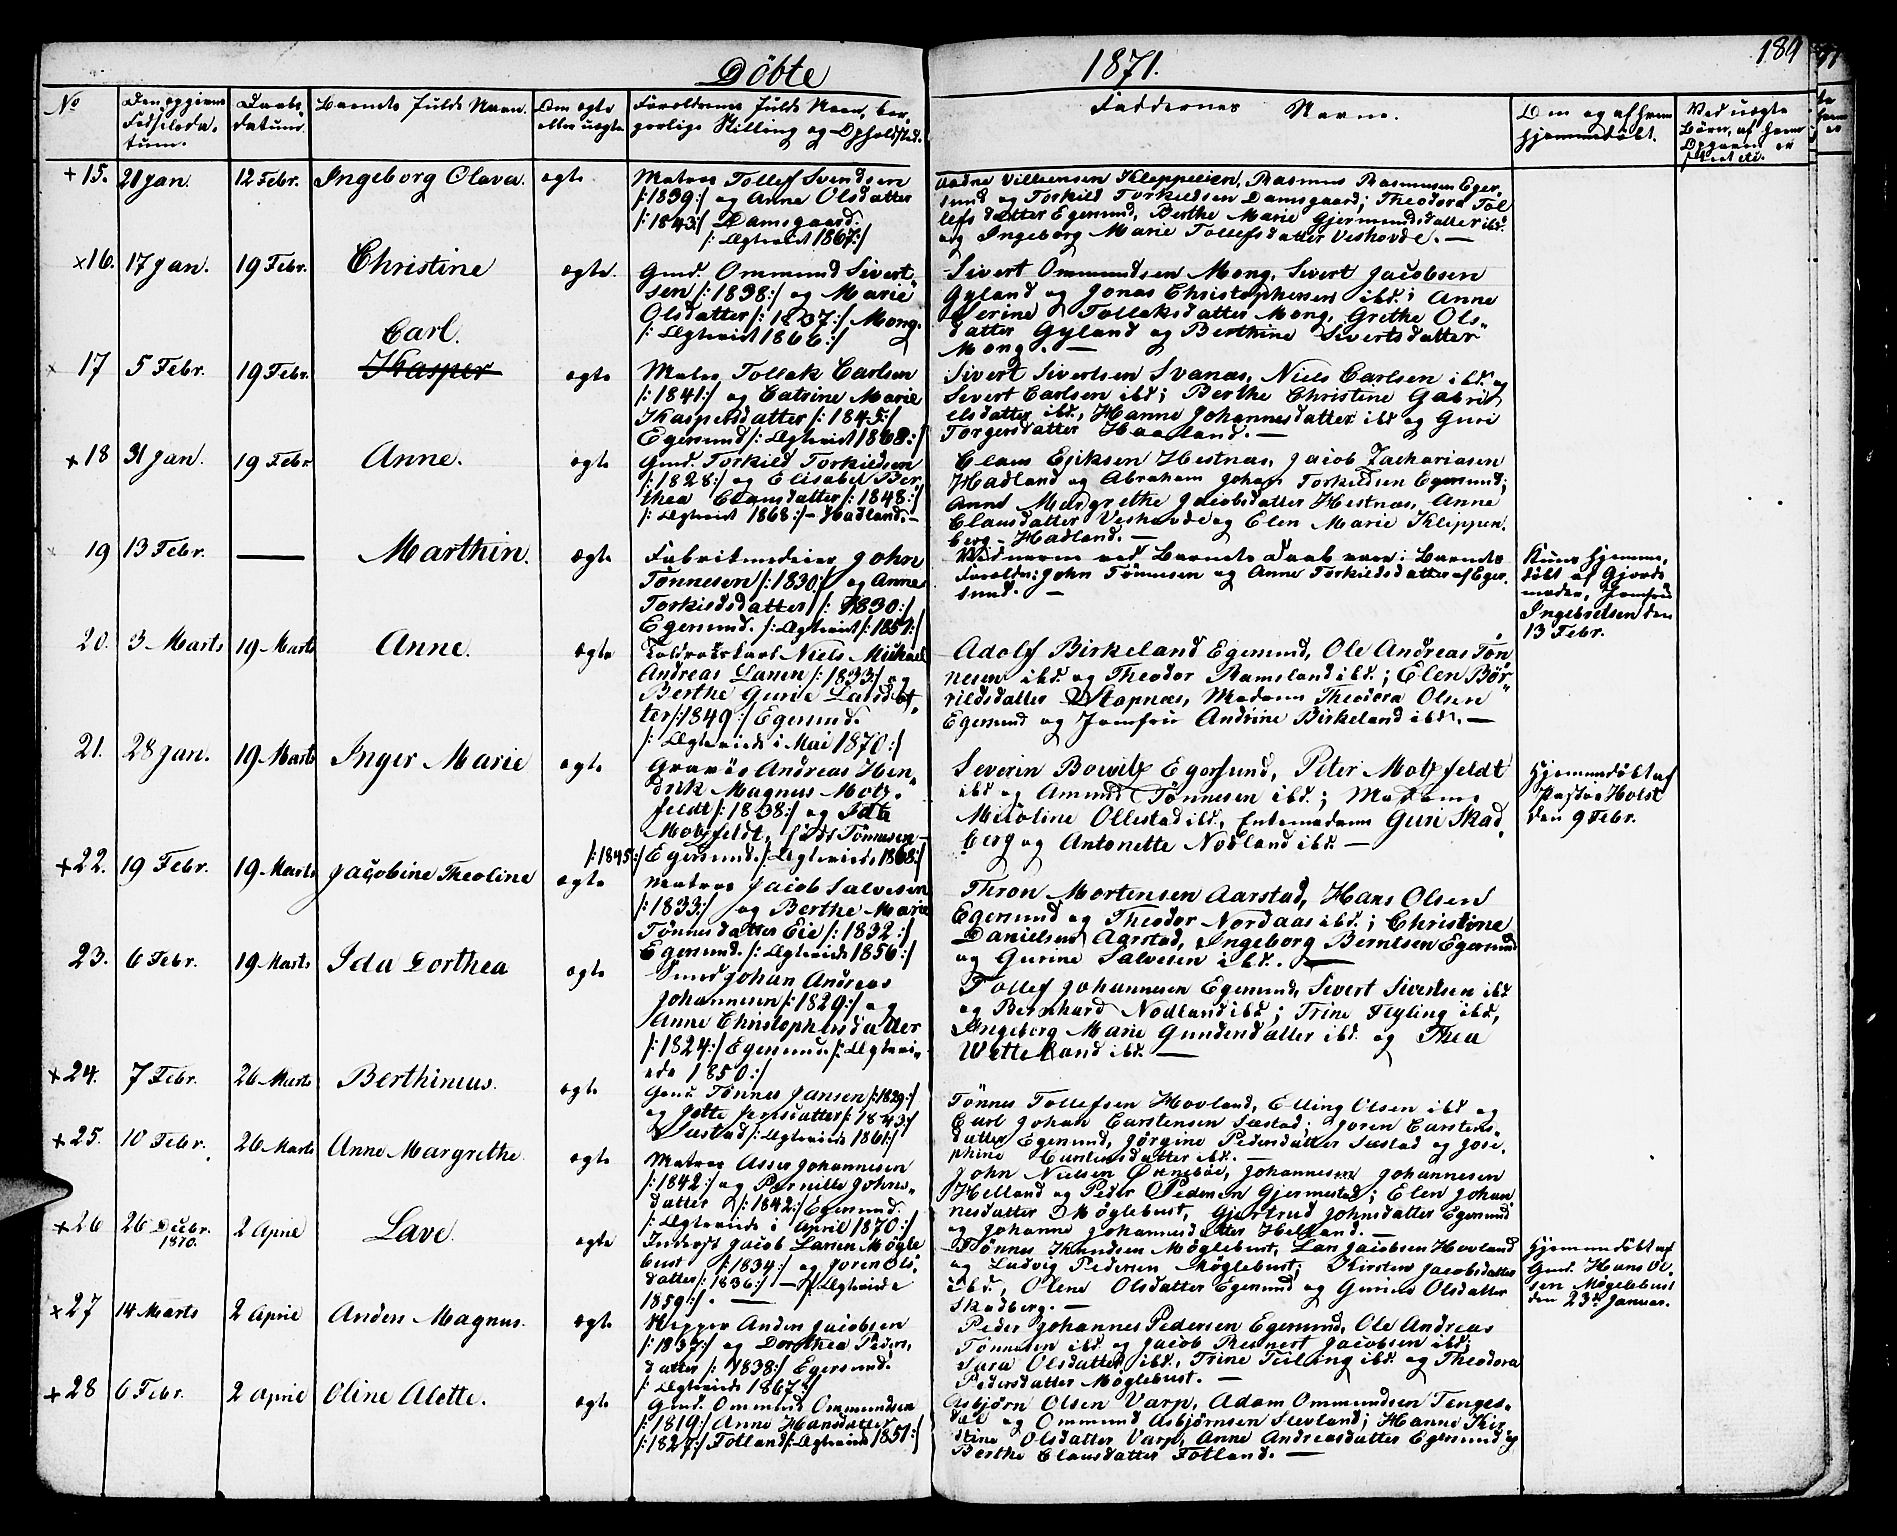 184
Døbte 1871.
No
Den opgivne Fødselsdatum.
Daabsdatum.
Barnets fulde Navn.
Om ægte eller uægte
Forældrenes fulde Navn, borgerlige Stilling og Opholdsted.
Faddernes Navne.
Om og af hvem hjemmedøbt.
Ved uægte Børn, af hvem Opgaven er
+ 15. 21 Jan. 12 Febr. Ingeborg Olava. ægte
Matros Tollef Svendsen
/:1839:/ og Anne Olsdatter
/:1843:/ Damsgaard.
/: Ægteviet 1867:/
Villumsen Kleppeien, Rasmus Rasmusen Eger,
sund og Torkild Torkildsen Damsgaard; Theodora Tol
lefsdatter Egersund, Berthe Marie Gjermundsdatter ibd.
og Ingeborg Marie Tollefsdatter Veshovde. —
x16. 17 Jan. 19 Febr. Christine ægte.
Gmd. Ommund Sivert
sen /:1838:/ og Marie
Olsdatter /:1837:/ Mong.
/: Ægteviet 1866:/
Sivert Ommundsen Mong, Sivert Jacobsen
Gyland og Jonas Christophersen ibd; Anne
Serine Tollaksdatter Mong, Grethe Ols"
datter Gyland og Berthine Sivertsdatter
Mong. —
x 17 5 Febr. 19 Febr. Carl. Kasper ægte
Matros Tollak Carlsen
/:1841:/ og Catrine Marie
Kaspersdatter /:1845:/
Egersund /: Ægteviet 1868:/
Sivert Sivertsen Svanæs, Niels Carlsen ibd. og
Sivert Carlsen ibd; Berthe Christine Gabri
elsdatter ibd., Hanne Johannesdatter ibd og Guri
Torgersdatter Haaland. —
+ 18 31 Jan. 19 Febr Anne. ægte
Gmd. Torkild Torkildsen
/:1828:/ og Elisabet Ber,
thea Clausdatter /:1848:/
/: Ægteviet 1868:/ – Hadland. –
Claus Eriksen Hestnæs, Jacob Zachariasen
Hadland og Abraham Johan Torkildsen Egersund;
Anne Margrethe Jacobsdatter Hestnæs, Anne
Clausdatter Veshovde og Elen Marie Kleppen
berg – Hadland. —
x 19 13 Febr. — Marthin. ægte
Fabrikmedeier John
Tønnesen /:1830:/ og Anne
Torkildsdatter /: 1830:/
Egersund. /: Ægteviet /:1851:/
Vidnerne ved Barnets Daab var: Barnets
Forældre: John Tønnesen og Anne Torkildsdatter af Eger.
sund. —
Kuns hjemme,
døbt af Gjorde
moder, Jomfru
Ingebretsen den
13 Febr.
20. 3 Marts 19 Marts Anne. ægte
Niels Michael
Andreas Larsen /:1833:/ og
Berthe Gurie Larsdat,
ter /:1849:/ Egersund.
/: Ægteviede i Mai 1870:/
Adolf Birkeland Egersund, Ole Andreas Tøn
nesen ibd og Theodor Ramsland ibd.; Elen Bør"
rildsdatter Stapnæs, Madam Theodora Olsen
Egersund og Jomfru Andrine Birkeland ibd. —
21. 28 Jan. 19 Marts Inger Marie ægte
Andreas Hen"
drik Magnus Motz"
feldt /:1838:/ og Ida
Motzfeldt, født Tønnesen
/:1845:/ Egersund. /: Ægteviede 1868:/
Severin Bowitz Egersund, Peter Motzfeldt
ibd og Amund Tønnesen ibd.; Madame
Ollestad ibd., Enkemadam Guri Skad,
berg og Antonette Nodland ibd —
Hjemmedøbt af
Pastor Holst
den 9 Febr.
+22. 19 Febr. 19 Marts Jacobine Theoline ægte
Matros Jacob Salvesen
/:1833:/ og Berthe Marie
Tønnesdatter Eie /:1832:/
Egersund. /: Ægteviede 1856:/
Thron Mortensen Aarstad, Hans Olsen
Egersund og Theodor Nordaas ibd.; Christine
Danielsen Aarstad, Ingeborg Berntsen Egersund
og Gurine Salvesen ibd. —
23. 6 Febr. 19 Marts Ida Dorthea ægte
Smed Johan Andreas
Johannesen /:1829:/ og
Anne Christophersdatter
/:1824:/ Egersund. /: Ægtevi,
ede 1850:/
Tollef Johannesen Egersund, Sivert Sivertsen ibd
og Bernhard Nodland ibd; Trine Feyling ibd,
Ingeborg Marie Gundersdatter ibd. og Thea
Wetteland ibd. —
+24. 7 Febr. 26 Marts Berthineus. ægte
Gmd. Tønnes Jansen /:1829:/
og Jette /:1843:/
Sæstad /: Ægteviede 1861:/
Tønnes Tollefsen Hovland, Elling Olsen ibd og
Carl Johan Carstensen Sæstad; Joren Carstens"
datter Egersund, Jørgine Pedersdatter Sæstad og Jose,
phine Carstensdatter ibd. —
+25. 10 Febr. 26 Marts Anne Margrethe. ægte
Matros Asser Johannesen
/:1842:/ og Pernille Johns"
datter /:1842:/ Egersund.
/: Ægteviede i April 1870:/
John Nielsen Ørnebøe, Johannes Johannesen
Helland og Peder Pedersen Gjermestad; Elen Johan
nesdatter Møglebust, Gjertrud Johnsdatter Egersund
og Johanne Johannesdatter Helland. —
+26 26 Decbr. 1870. 2 April Lave. ægte
Inderst Jacob Larsen Møgle
bust /:1834:/ og Joren Ols,
datter /:1836:/ — /: Ægteviede
1859:/. —
Tønnes Knudsen Møglebust, Lars Jacobsen Hovland
og Ludvig Pedersen Møglebust; Kirsten Jacobsdatter
ibd., Olene Olsdatter Egersund og Gurine Olsdatter
Skadberg. —
Hjemmedøbt af
Gmd. Hans Ol
sen Møglebust
den 23de Januar.
+27 14 Marts 2 April Anders Magnus. ægte
Væpper Anders Jacobsen
/:1837:/ og Dorthea Peders,
datter /:1838:/ Egersund.
/: Ægteviede 1867:/
Peder Johannes Pedersen Egersund, Ole Andreas
Tønnesen ibd og Jacob Reinert Jacobsen ibd;
Sara Olsdatter ibd., Trine Feiling ibd. og Theodora
Pedersdatter Møglebust. —
+28 6 Febr. 2 April Oline Alette. ægte
Gmd. Ommund Ommundsen
/:1819:/ Anne Hansdatter
/:1827:/ Fotland /: Ægteviede 1851:/
Asbjørn Olsen Varp, Adam Ommundsen Tenges"
dal og Ommund Asbjørnsen Slevland; Hanne Kir
stine Olsdatter Varp, Anne Andreasdatter Egersund og
Berthe Clausdatter Fotland. —